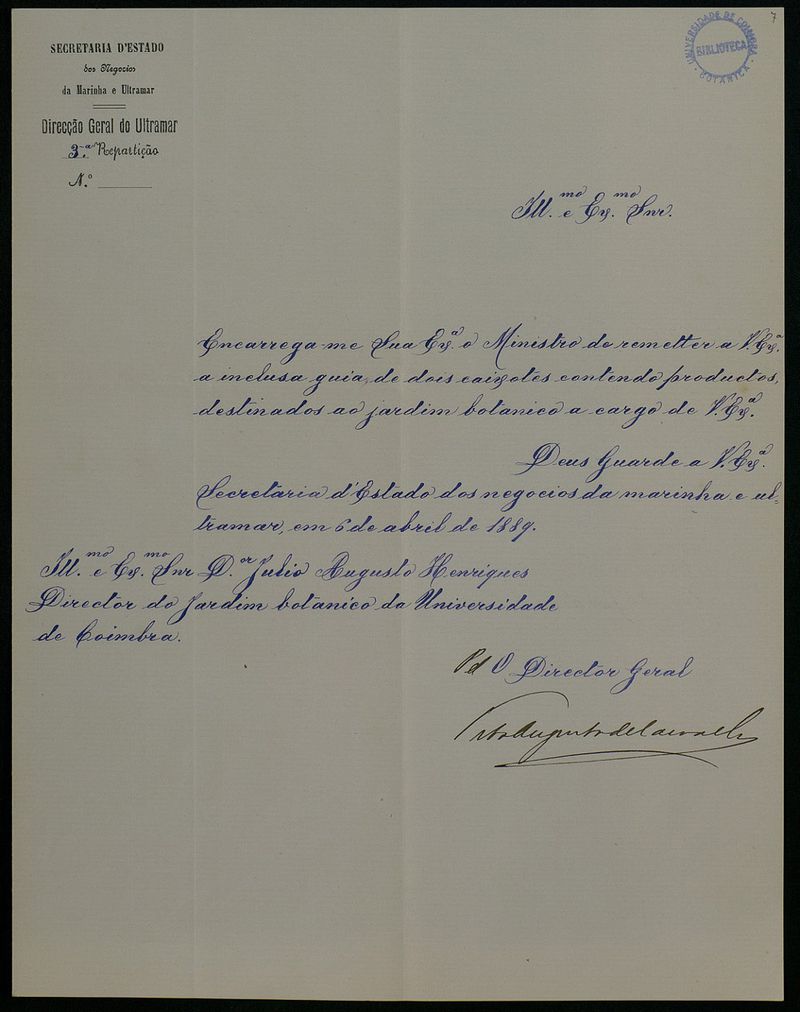 7
UNIVERSIDADE DE COIMBRA
BIBLIOTECA
BOTANICA
SECRETARIA D'ESTADO
dos Negocios
da Marinha e Ultramar
Direcção Geral do Ultramar
3.ª Repartição
N.º
Ill.mo e Ex.mo Snr.
Encarrega-me Sua Ex.ª o Ministro de remetter a V. Ex.ª
a inclusa guia, de dois caixotes contendo productos,
destinados ao jardim botanico a cargo de V. Ex.ª.
Deus Guarde a V. Ex.ª.
Secretaria d'Estado dos negocios da marinha e ul=
tramar, em 6 de abril de 1889.
Ill.mo e Ex.mo Snr D.or Julio Augusto Henriques
Director do Jardim botanico da Universidade
de Coimbra.
O Director Geral